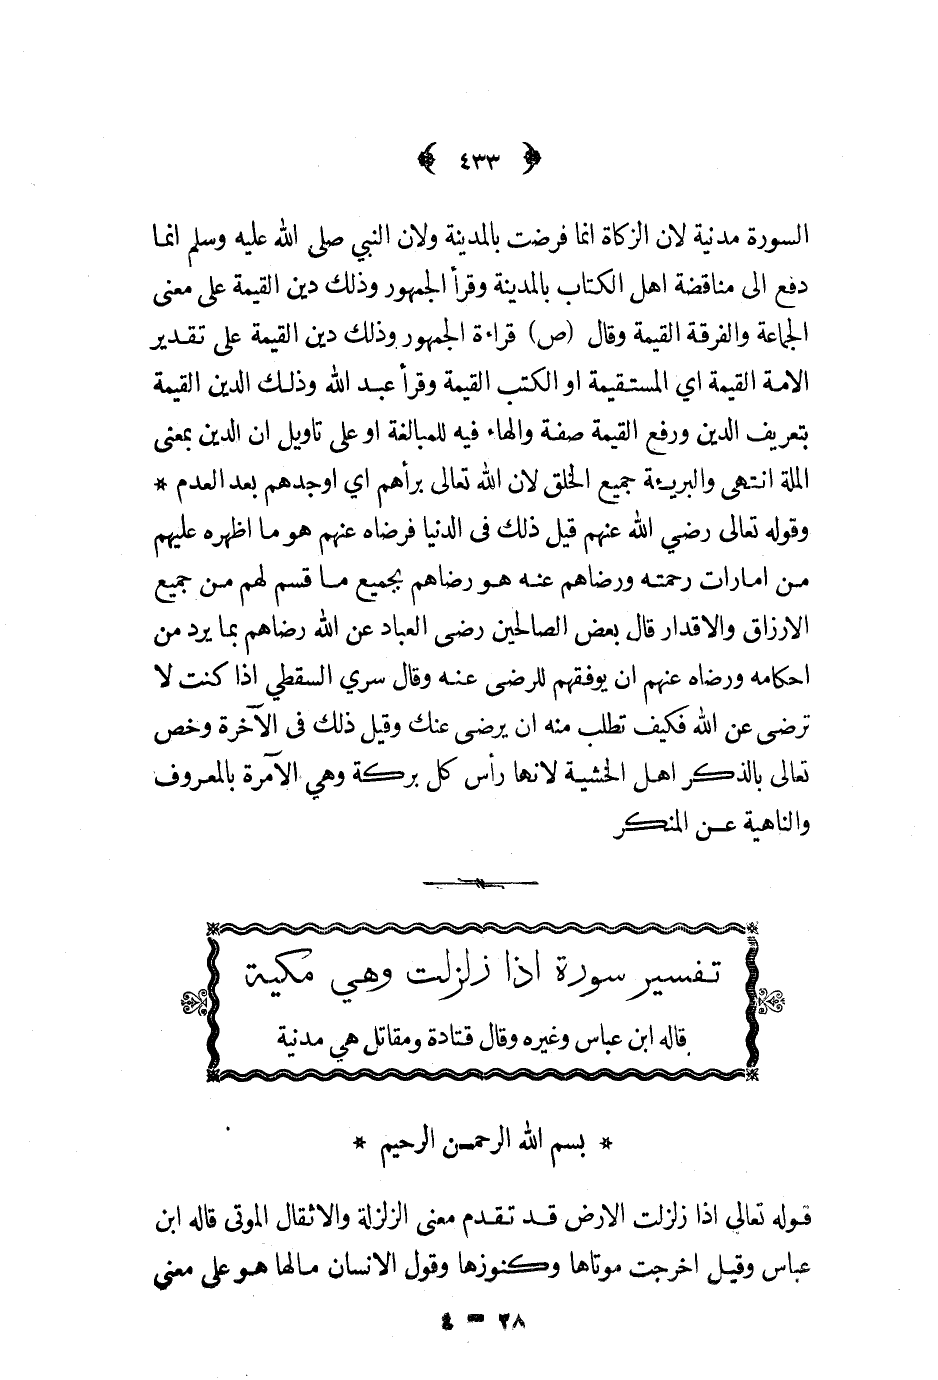 ﴿ ٤٣٣ ﴾
السورة مدنية لان الزكاة انما فرضت بالمدينة ولان النبي صلى الله عليه وسلم انما
دفع الى مناقضة اهل الكتاب بالمدينة وقرأ الجمهور وذلك دين القيمة على معنى
الجماعة والفرقة القيمة وقال (ص) قراءة الجمهور وذلك دين القيمة على تقدير
الامة القيمة اي المستقيمة او الكتب القيمة وقرأ عبد الله وذلك الدين القيمة
بتعريف الدين ورفع القيمة صفة والهاء فيه للمبالغة او على تاويل ان الدين بمعنى
الملة انتهى والبريـءة جميع الخلق لان الله تعالى برأهم اي اوجدهم بعد العدم *
وقوله تعالى رضي الله عنهم قيل ذلك فى الدنيا فرضاه عنهم هو ما اظهره عليهم
من امارات رحمته ورضاهم عنه هو رضاهم بجميع ما قسم لهم من جميع
الارزاق والاقدار قال بعض الصالحين رضى العباد عن الله رضاهم بما يرد من
احكامه ورضاه عنهم ان يوفقهم للرضى عنه وقال سري السقطي اذا كنت لا
ترضى عن الله فكيف تطلب منه ان يرضى عنك وقيل ذلك فى الآخرة وخص
تعالى بالذكر اهل الخشية لانها رأس كل بركة وهي الآمرة بالمعروف
والناهية عن المنكر
تفسير سورة اذا زلزلت وهي مكية
قاله ابن عباس وغيره وقال قتادة ومقاتل هي مدنية
* بسم الله الرحمن الرحيم *
قوله تعالى اذا زلزلت الارض قد تقدم معنى الزلزلة والاثقال الموتى قاله ابن
عباس وقيل اخرجت موتاها وكنوزها وقول الانسان مالها هو على معنى
٢٨ - ٤